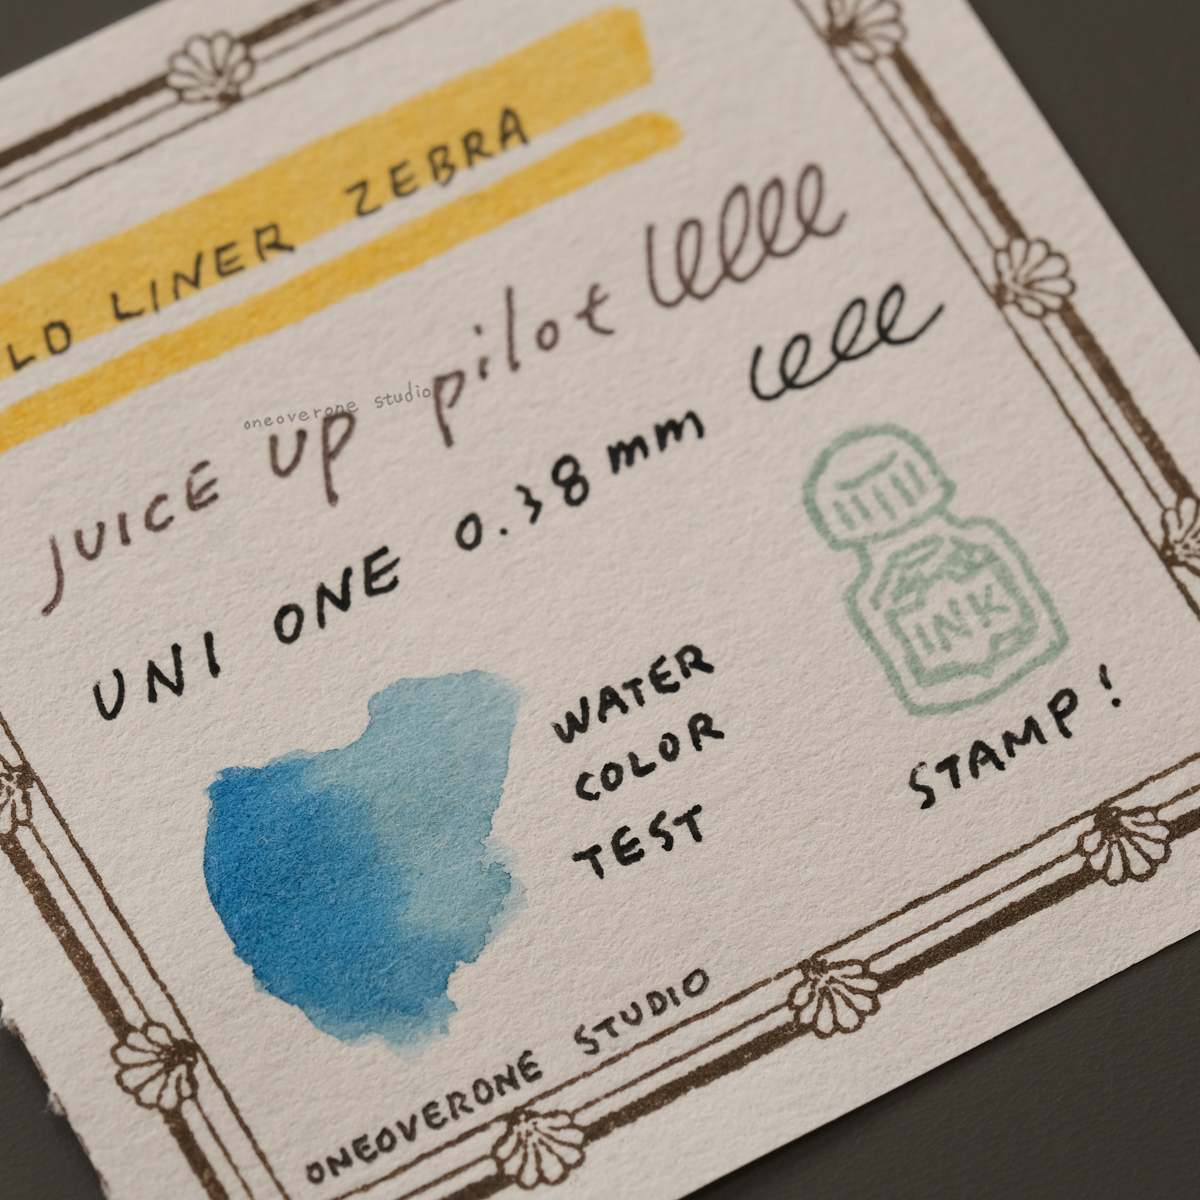 LD LINER ZEBRA
JUICE UP pilot
oneoverone studio
UNI ONE 0.38 mm
INK
WATER
COLOR
TEST
STAMP!
ONEOVERONE STUDIO